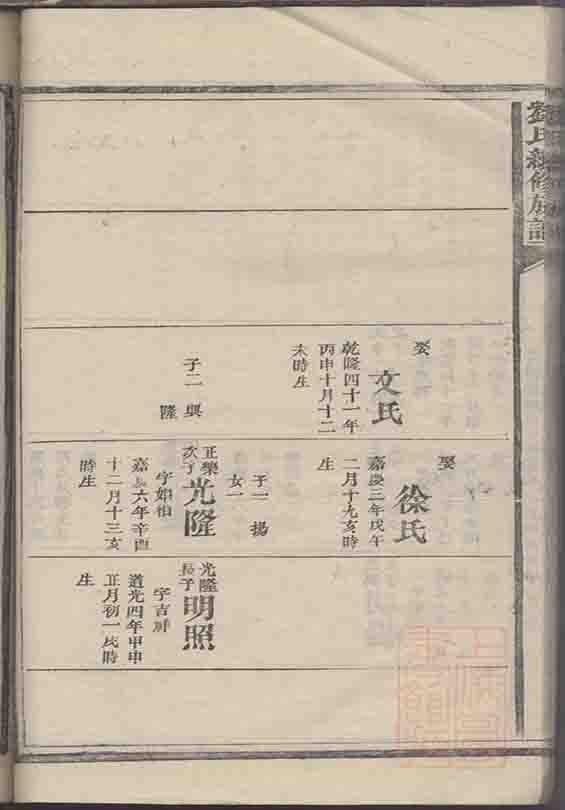 劉氏續修族譜
娶
文氏
乾隆四十一年
丙申十月十二
未時生
子二 興
隆
娶
徐氏
嘉慶三年戊午
二月十九亥時
生
子一 揚
女一
正樂
次子
光隆
字
嘉慶六年辛酉
十二月十三亥
時生
光隆
長子
明照
字吉祥
道光四年甲申
正月初一戌時
生